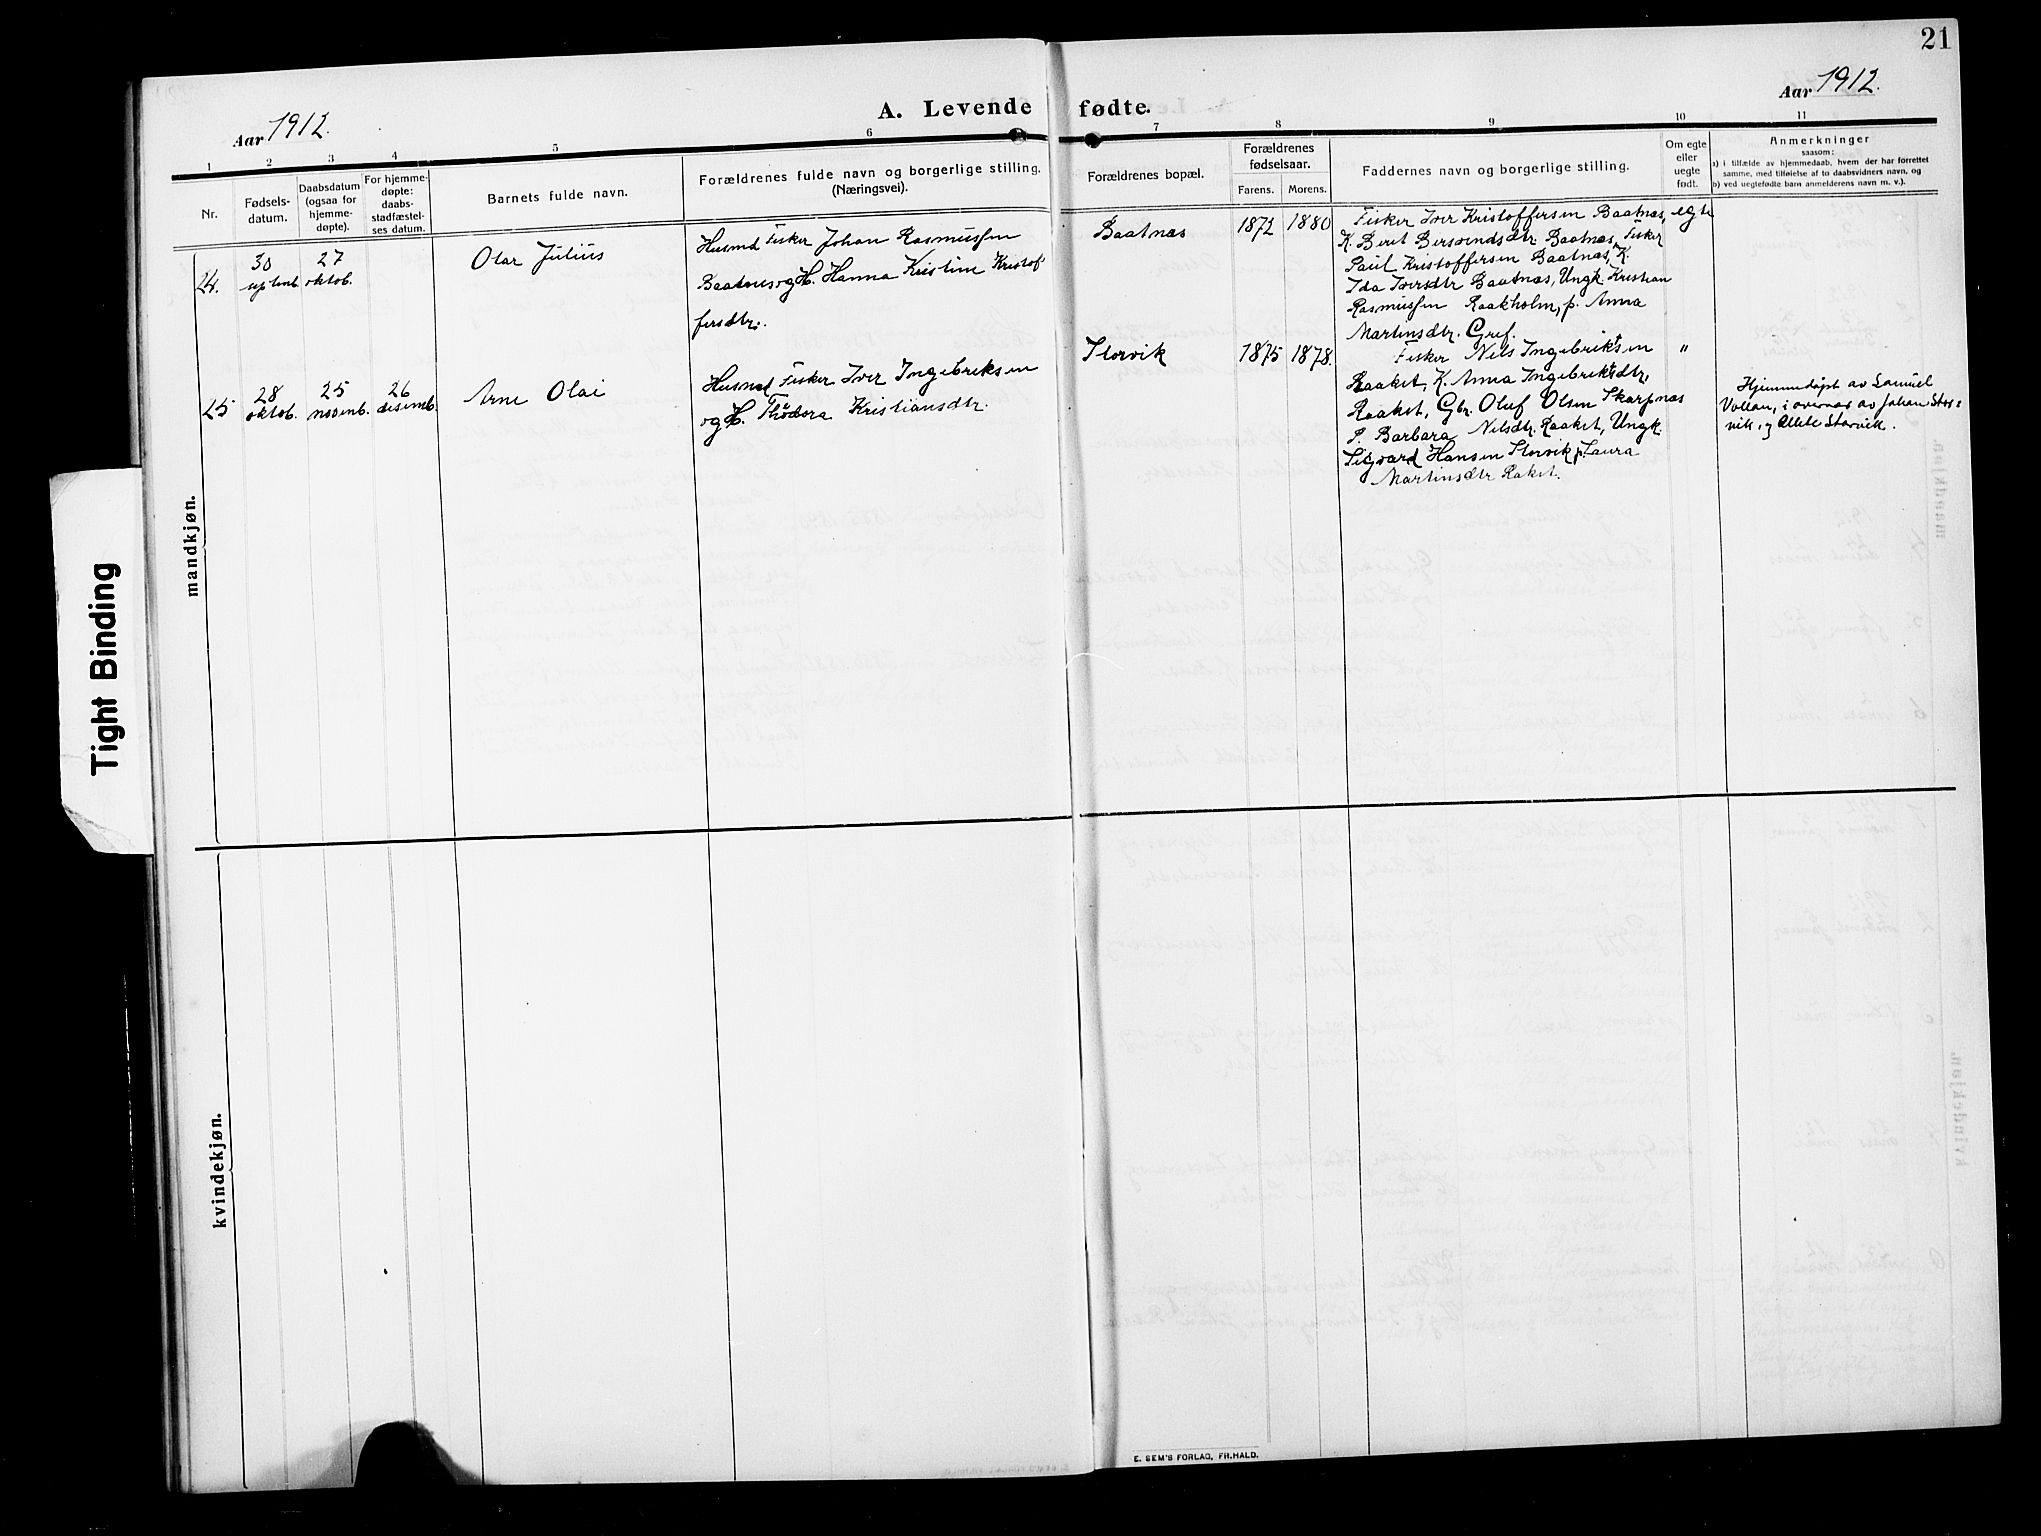 21
Aar 1912.
A. Levende fødte.
Aar 1912.
1 2 3 4 5 6 7 8 9 10 11
Nr.
Fødsels-
datum.
Daabsdatum
(ogsaa for
hjemme-
døpte).
For hjemme-
døpte:
daabs-
stadfæstel-
ses datum.
Barnets fulde navn.
Forældrenes fulde navn og borgerlige stilling.
(Næringsvei).
Forældrenes bopæl.
Forældrenes
fødselsaar.
Farens. Morens.
Faddernes navn og borgerlige stilling.
Om egte
eller
uegte
født.
Anmerkninger
saasom:
a) i tilfælde av hjemmedaab, hvem der har forrettet
samme, med tilføielse af to daabsvidners navn, og
b) ved uegtefødte barn anmelderens navn m. v.).
mandkjøn.
24.
30
septemb.
27
oktob.
Olar Julius
Husmd Fisker Johan Rasmussen
Baatnes og H. Hanna Kristine Kristof
fersdtr.
Baatnæs
1872 1880
Fisker Iver Kristoffersen Baatnæs,
K. Beret Bersvendsdtr. Baatnæs, Fisker
Paul Kristoffersen Baatnæs, K.
Ida Iversdtr Baatnæs, Ungk. Kristian
Rasmussen Raakholm, p. Anna
Martinsdtr. Gref.
egte
25
28
oktob.
25
novemb.
26
desemb.
Arne Olai
Husmd Fisker Iver Ingebriksen
og H. Thödora Kristiansdtr.
Storvik
1875 1878.
Fisker Nils Ingebriktsen
Raaket, K. Anna Ingebriktsdtr,
Raaket, Gbr. Oluf Olsen Skarpnæs
P. Barbara Nilsdtr. Raaket, Ungk.
Sigvard Hansen Storvik p. Laura
Martinsdtr Raket.
"
Hjemmedøpt av Samuel
Vollan, i overvær av Johan Stor=
vik, og Storvik.
kvindekjøn.
Tight Binding
E. SEM'S FORLAG, FR.HALD.